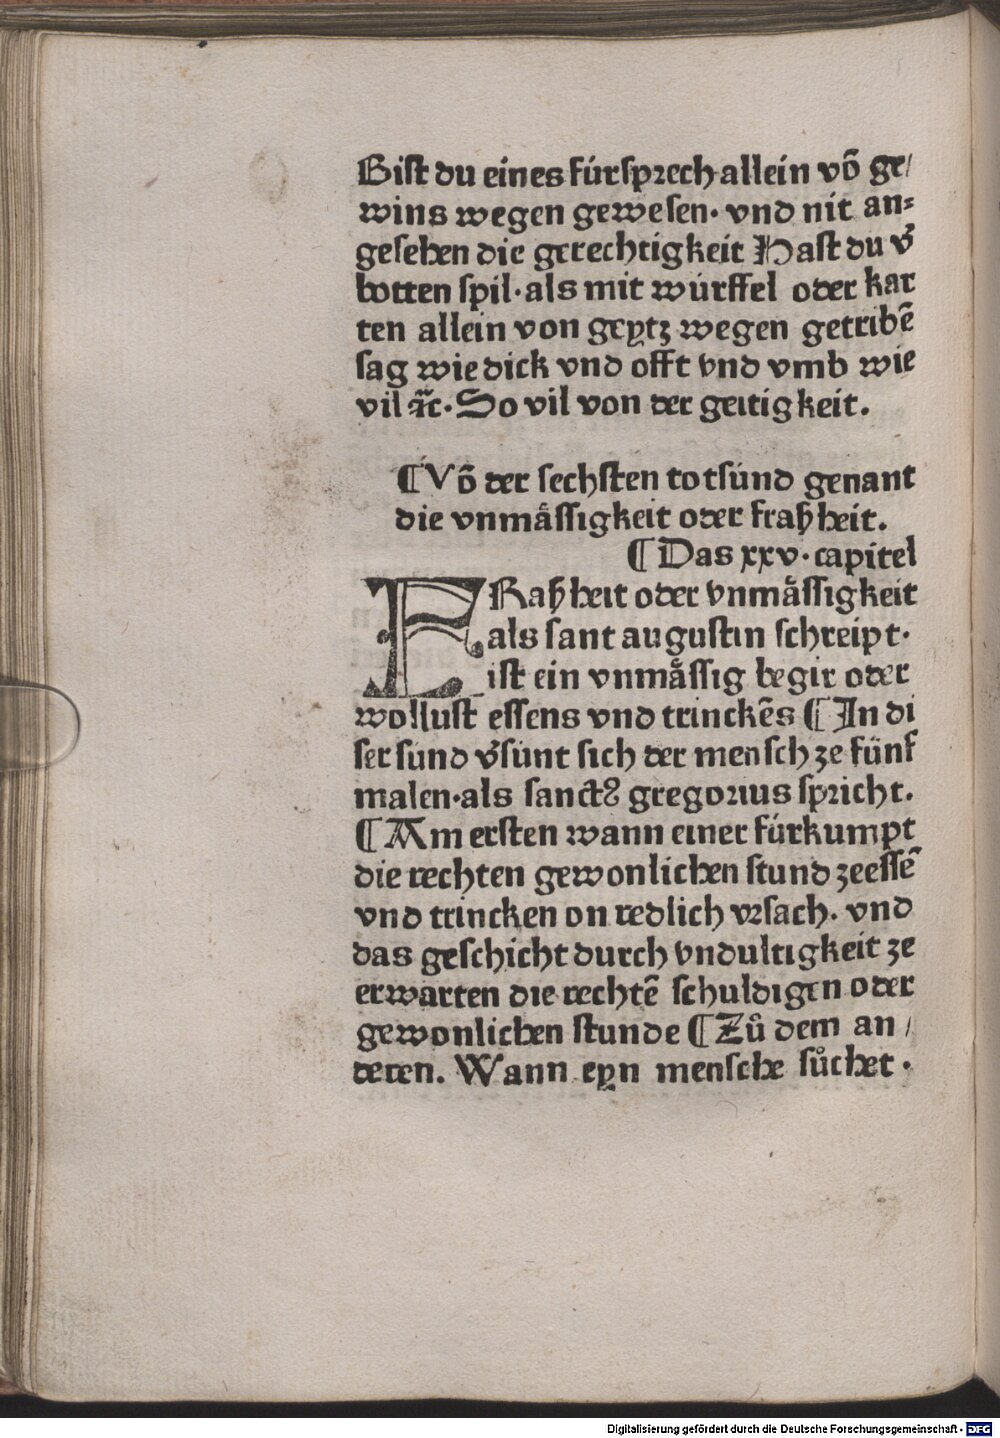 Bist du eines fúrsprech allein võ ge/
wins wegen gewesen· vnd nit an=
gesehen die gerechtigkeit Hast du v̉
botten spil·als mit wúrffel oder kar
ten allein von geytz wegen getribẽ
sag wie dick vnd offt vnd vmb wie
vil ⁊c̃·So vil von der geitigkeit.
¶Võ der sechsten totsúnd genant
die vnmåssigkeit oder fraßheit.
¶Das xxv·capitel
FRaßheit oder vnmåssigkeit
als sant augustin schreipt·
ist ein vnmåssig begir oder
wollust essens vnd trinckẽs ¶In di
ser súnd v̉súnt sich der mensch ze fúnf
malen·als sanctꝰ gregorius spricht.
¶Am ersten wann einer fúrkumpt
die rechten gewonlichen stund zeessẽ
vnd trincken on redlich vrsach. vnd
das geschicht durch vndultigkeit ze
erwarten die rechtẽ schuldigen oder
gewonlichen stunde ¶Zů dem an/
deren. Wann eyn mensche sůchet·
Digitalisierung gefördert durch die Deutsche Forschungsgemeinschaft - DFG